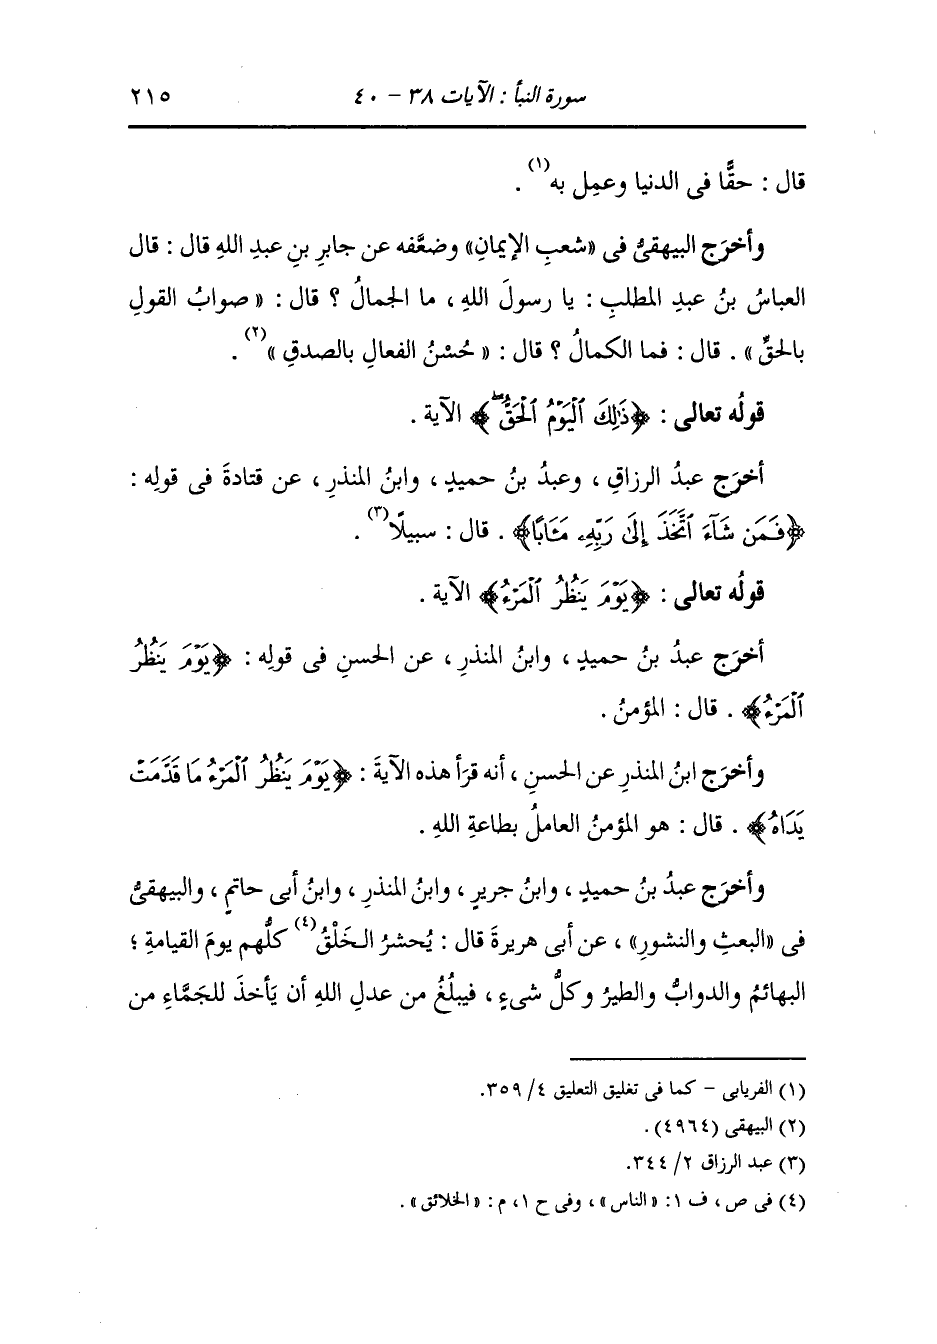 سورة النبأ : الآيات ٣٨ - ٤٠ ٢١٥
قال : حقًّا فى الدنيا وعمِل به(١) .
وأخرَج البيهقىُّ فى «شعبِ الإيمانِ» وضعَّفه عن جابرِ بنِ عبدِ اللهِ قال : قال
العباسُ بنُ عبدِ المطلبِ : يا رسولَ اللهِ ، ما الجمالُ ؟ قال : « صوابُ القولِ
بالحقِّ » . قال : فما الكمالُ ؟ قال : « حُسْنُ الفعالِ بالصدقِ »(٢) .
قولُه تعالى : ﴿ذَٰلِكَ ٱلۡيَوۡمُ ٱلۡحَقُّۖ﴾ الآية .
أخرَج عبدُ الرزاقِ ، وعبدُ بنُ حميدٍ ، وابنُ المنذرِ ، عن قتادةَ فى قولِه :
﴿فَمَن شَآءَ ٱتَّخَذَ إِلَىٰ رَبِّهِۦ مَـَٔابًا﴾ . قال : سبيلًا(٣) .
قولُه تعالى : ﴿يَوۡمَ يَنظُرُ ٱلۡمَرۡءُ﴾ الآية .
أخرَج عبدُ بنُ حميدٍ ، وابنُ المنذرِ ، عن الحسنِ فى قولِه : ﴿يَوۡمَ يَنظُرُ
ٱلۡمَرۡءُ﴾ . قال : المؤمنُ .
وأخرَج ابنُ المنذرِ عن الحسنِ ، أنه قرَأ هذه الآيةَ : ﴿يَوۡمَ يَنظُرُ ٱلۡمَرۡءُ مَا قَدَّمَتۡ
يَدَاهُ﴾ . قال : هو المؤمنُ العاملُ بطاعةِ اللهِ .
وأخرَج عبدُ بنُ حميدٍ ، وابنُ جريرٍ ، وابنُ المنذرِ ، وابنُ أبى حاتمٍ ، والبيهقىُّ
فى «البعثِ والنشورِ» ، عن أبى هريرةَ قال : يُحشرُ الخَلْقُ(٤) كلُّهم يومَ القيامةِ ؛
البهائمُ والدوابُّ والطيرُ وكلُّ شىءٍ ، فيبلُغُ من عدلِ اللهِ أن يَأخذَ للجَمَّاءِ من
(١) الفريابى - كما فى تغليق التعليق ٤/ ٣٥٩.
(٢) البيهقى (٤٩٦٤) .
(٣) عبد الرزاق ٢/ ٣٤٤.
(٤) فى ص ، ف ١: « الناس » ، وفى ح ١، م : « الخلائق » .